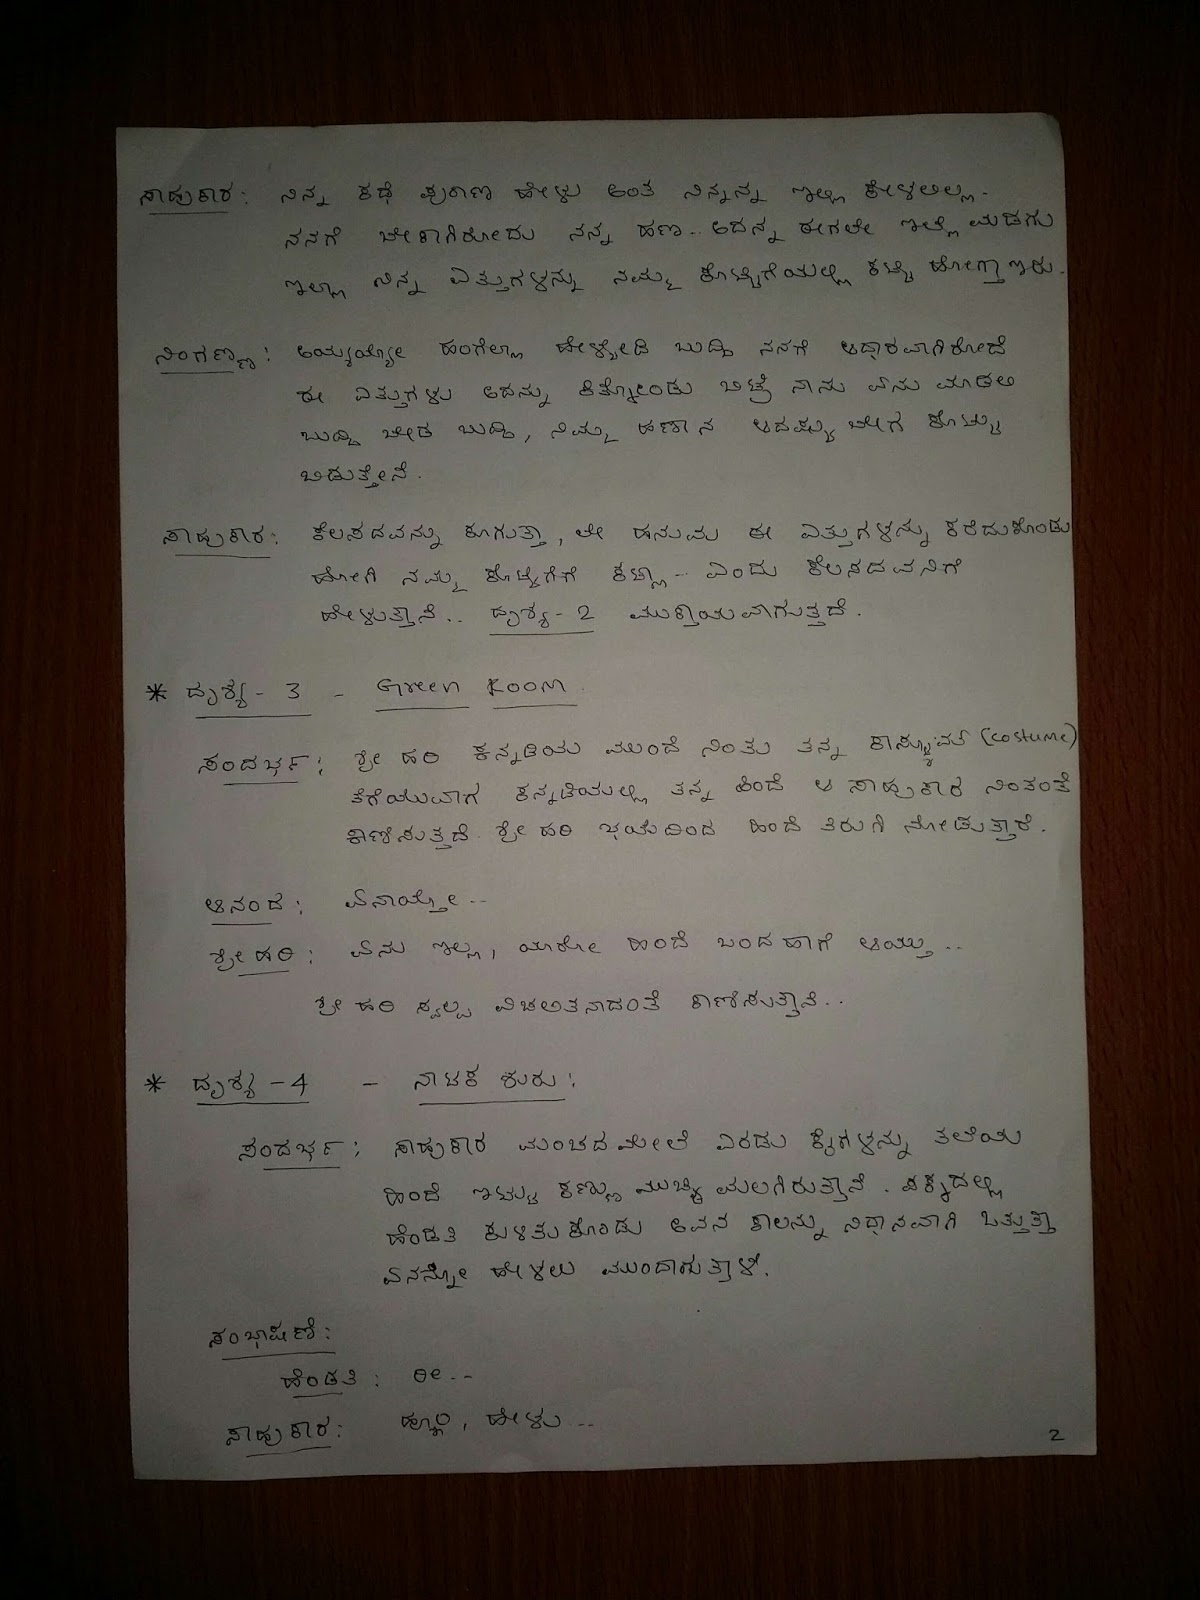 ಸಾಹುಕಾರ: ನಿನ್ನ ಕಥೆ ಪುರಾಣ ಹೇಳು ಅಂತ ನಿನ್ನನ್ನ ಇಲ್ಲಿ ಕೇಳಲಿಲ್ಲ.
ನನಗೆ ಬೇಕಾಗಿರೋದು ನನ್ನ ಹಣ.. ಅದನ್ನ ಈಗಲೇ ಇಲ್ಲೆ ಮಡಗು
ಇಲ್ಲಾ ನಿನ್ನ ಎತ್ತುಗಳನ್ನು ನಮ್ಮ ಕೊಟ್ಟಿಗೆಯಲ್ಲಿ ಕಟ್ಟಿ ಹೋಗ್ತಾ ಇರು.
ನಿಂಗಣ್ಣ: ಅಯ್ಯಯ್ಯೋ ಹಂಗೆಲ್ಲಾ ಹೇಳ್ಬೇಡಿ ಬುದ್ದಿ ನನಗೆ ಆಧಾರವಾಗಿರೋದೆ
ಈ ಎತ್ತುಗಳು ಅದನ್ನು ಕಿತ್ಕೋಂಡು ಬಿಟ್ರೆ ನಾನು ಏನು ಮಾಡಲಿ
ಬುದ್ದಿ ಬೇಡ ಬುದ್ದಿ, ನಿಮ್ಮ ಹಣಾನ ಆದಷ್ಟು ಬೇಗ ಕೊಟ್ಟು
ಬಿಡುತ್ತೇನೆ.
ಸಾಹುಕಾರ: ಕೆಲಸದವನ್ನು ಕೂಗುತ್ತಾ, ಲೇ ಹನುಮ ಈ ಎತ್ತುಗಳನ್ನು ಕರೆದುಕೊಂಡು
ಹೋಗಿ ನಮ್ಮ ಕೊಟ್ಟಿಗೆಗೆ ಕಟ್ಲಾ.. ಎಂದು ಕೆಲಸದವನಿಗೆ
ಹೇಳುತ್ತಾನೆ.. ದೃಶ್ಯ-2 ಮುಕ್ತಾಯವಾಗುತ್ತದೆ.
* ದೃಶ್ಯ- 3 - Green Room.
ಸಂದರ್ಭ: ಶ್ರೀ ಹರಿ ಕನ್ನಡಿಯ ಮುಂದೆ ನಿಂತು ತನ್ನ (costume)
ತೆಗೆಯುವಾಗ ಕನ್ನಡಿಯಲ್ಲಿ ತನ್ನ ಹಿಂದೆ ಆ ಸಾಹುಕಾರ ನಿಂತಂತೆ
ಕಾಣಿಸುತ್ತದೆ. ಶ್ರೀ ಹರಿ ಭಯದಿಂದ ಹಿಂದೆ ತಿರುಗಿ ನೋಡುತ್ತಾರೆ.
ಆನಂದ: ಏನಾಯ್ತೋ..
ಶ್ರೀ ಹರಿ: ಏನು ಇಲ್ಲ, ಯಾರೋ ಹಿಂದೆ ಬಂದ ಹಾಗೆ ಆಯ್ತು..
ಶ್ರೀ ಹರಿ ಸ್ವಲ್ಪ ವಿಚಲಿತನಾದಂತೆ ಕಾಣಿಸುತ್ತಾನೆ..
* ದೃಶ್ಯ -4 - ನಾಟಕ ಶುರು:
ಸಂದರ್ಭ: ಸಾಹುಕಾರ ಮಂಚದ ಮೇಲೆ ಎರಡು ಕೈಗಳನ್ನು ತಲೆಯ
ಹಿಂದೆ ಇಟ್ಟು ಕಣ್ಣು ಮುಚ್ಚಿ ಮಲಗಿರುತ್ತಾನೆ. ಪಕ್ಕದಲ್ಲಿ
ಹೆಂಡತಿ ಕುಳಿತುಕೊಂಡು ಅವನ ಕಾಲನ್ನು ನಿಧಾನವಾಗಿ ಒತ್ತುತ್ತಾ
ಏನನ್ನೋ ಹೇಳಲು ಮುಂದಾಗುತ್ತಾಳೆ.
ಸಂಭಾಷಣೆ:
ಹೆಂಡತಿ: ರೀ..
ಸಾಹುಕಾರ: ಹೇಳು..
2